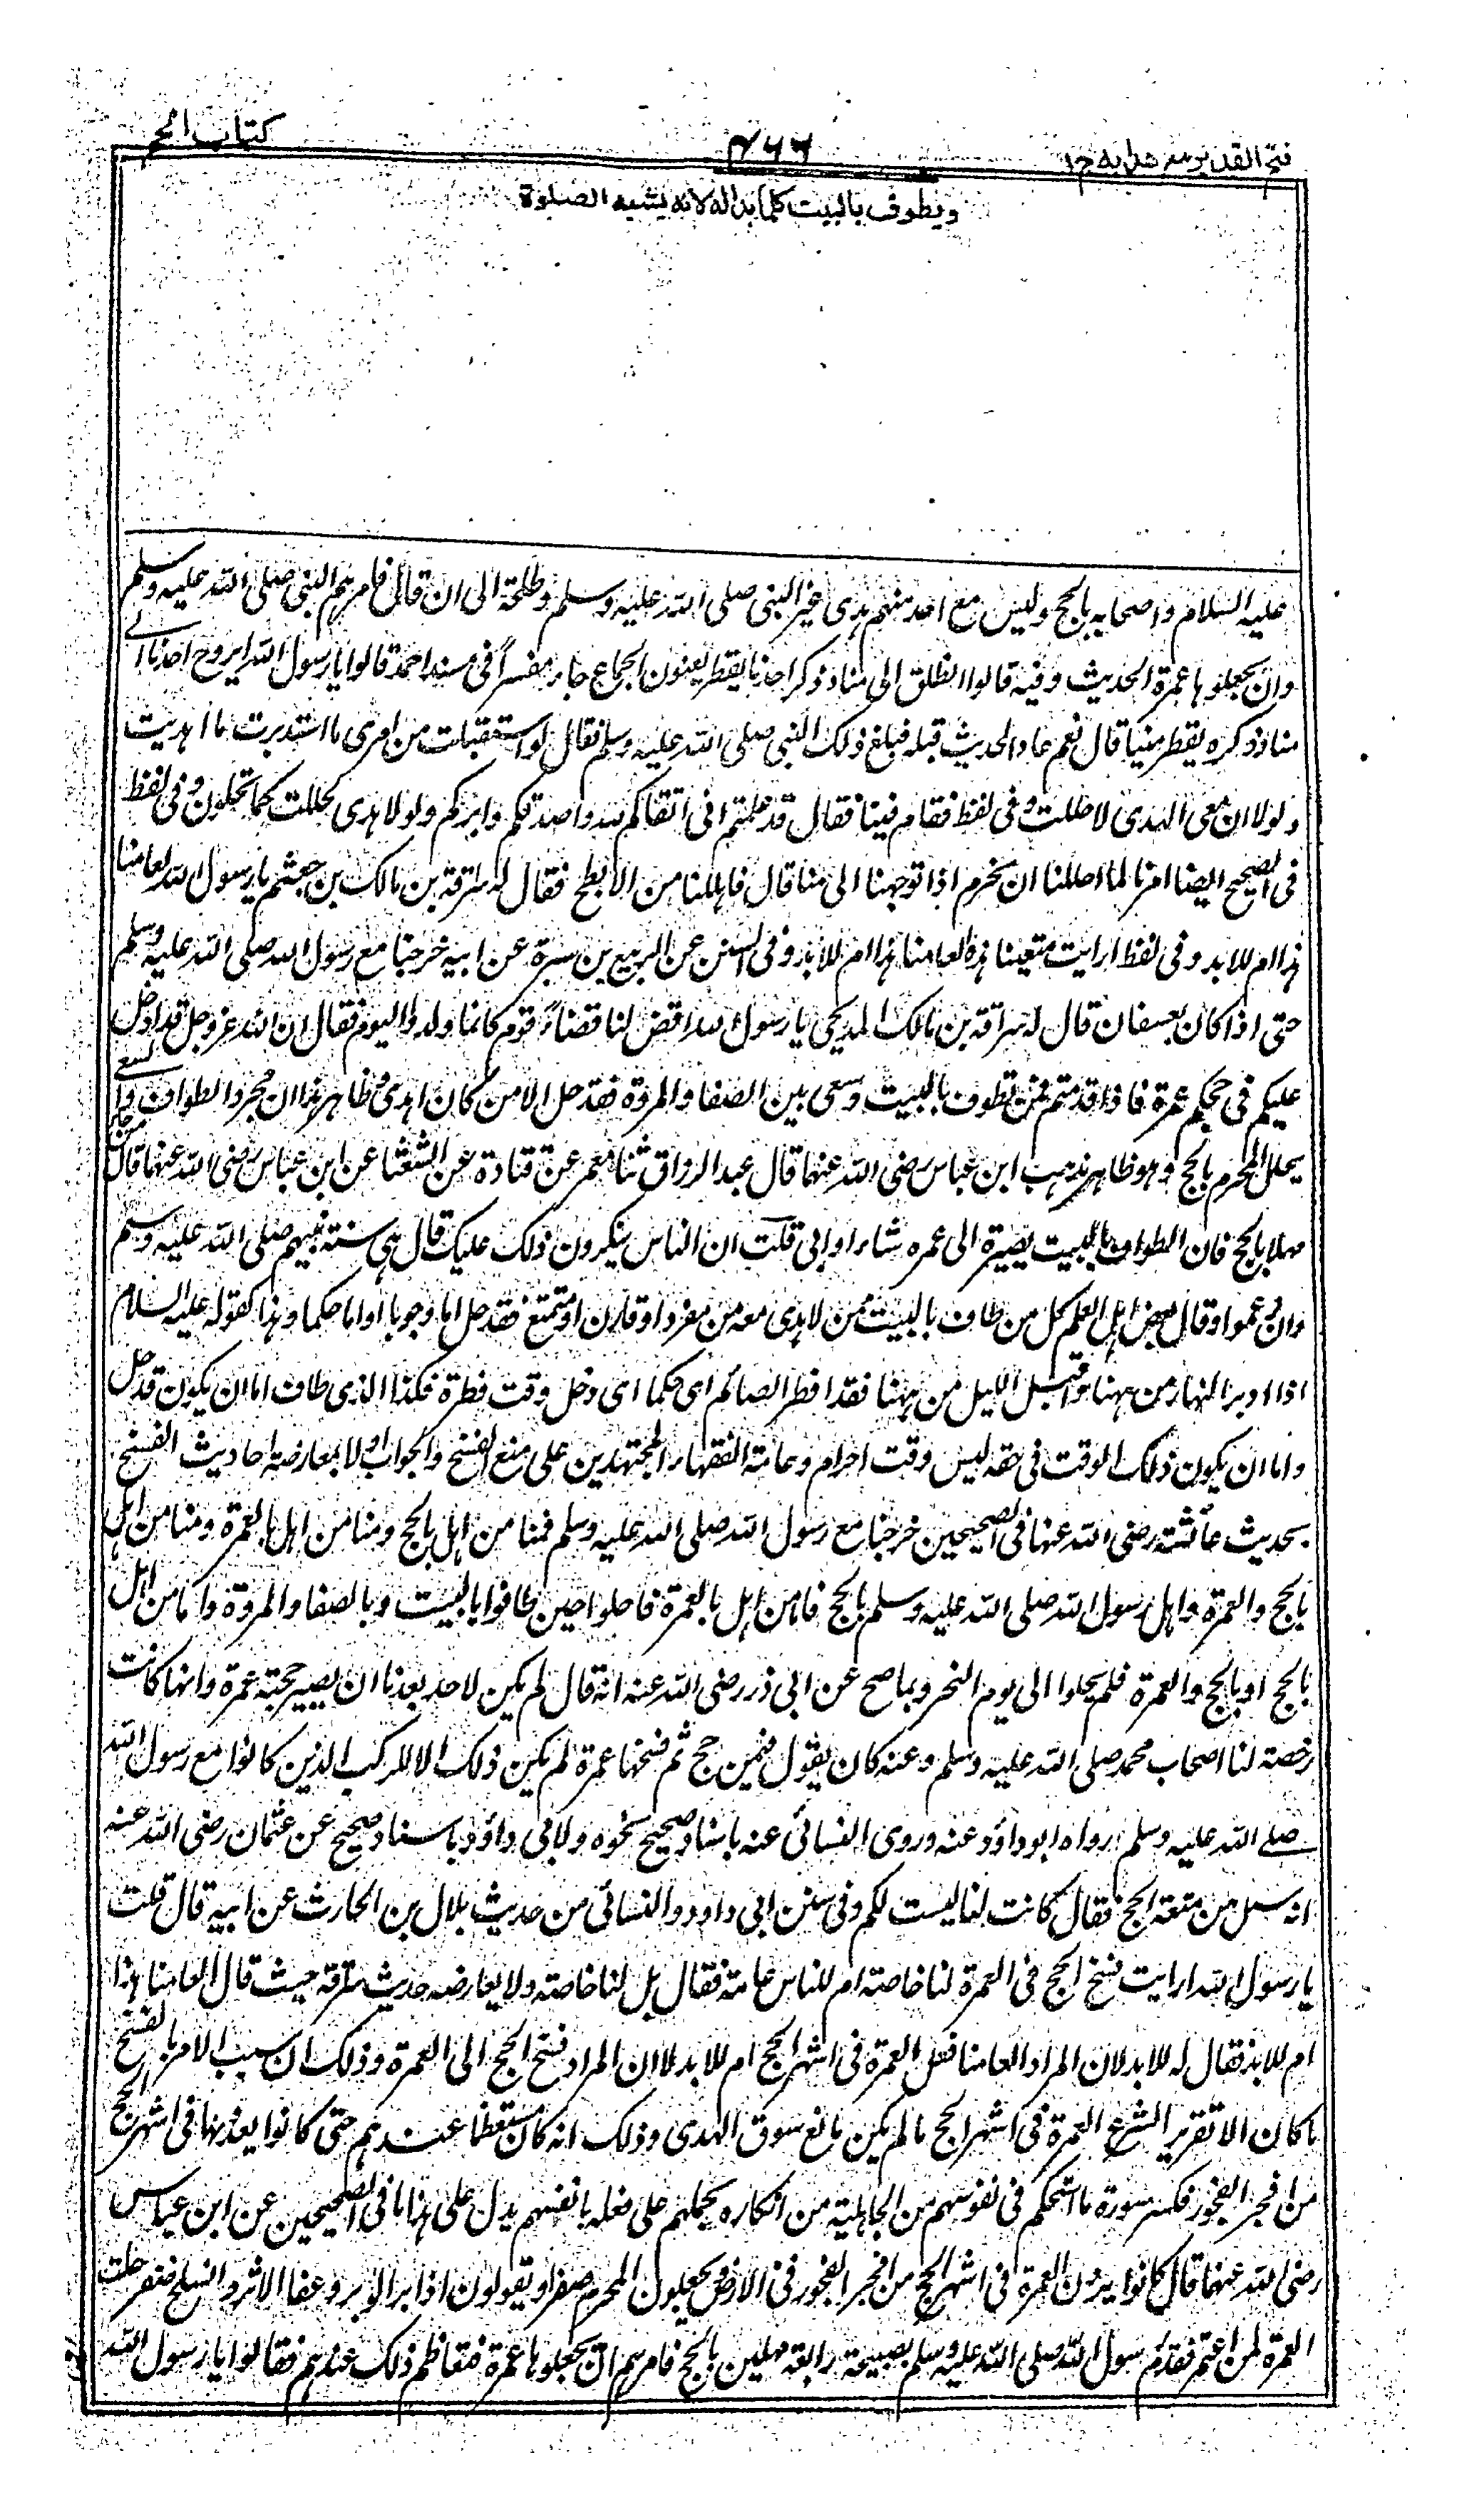 فتح القدير مع هدايه ج١
٤٦٦
كتاب الحج
ويطوف بالبيت كلما بدا له لانه يشبه الصلوة
عليه السلام واصحابه بالحج وليس مع احد منهم هدى غير النبى صلى الله عليه وسلم وطلحة الى ان قال فامرهم النبى صلى الله عليه وسلم
وان يجعلوها عمرة الحديث وفيه قالوا انطلق الى منا وذكر احدنا يقطر يعنون الجماع جاء مفسراً فى مسند احمد قالوا يا رسول الله ايروح احدنا الے
منا وذكره يقطر منيا قال نعم عاد الحديث قبله فبلغ ذلك النبى صلى الله عليه وسلم فقال لو استقبلت من امرى ما استدبرت ما اهديت
ولولا ان معى الهدى لاحللت وفى لفظ فقام فينا فقال قد علمتم انى اتقاكم لله واصدقكم وابركم ولولا هدى لحللت كما تحلون وفى لفظ
فى الصحيح ايضا امرنا لما احللنا ان نحرم اذا توجهنا الى منا قال فاهللنا من الابطح فقال له سراقة بن مالك بن جعشم يا رسول الله لعامنا
هذا ام للابد وفى لفظ ارايت متعتنا هذه لعامنا هذا ام للابد وفى السنن عن الربيع بن سبرة عن ابيه خرجنا مع رسول الله صلى الله عليه وسلم
حتى اذا كان بعسفان قال له سراقة بن مالك المدلجى يا رسول الله اقض لنا قضاء قوم كانما ولدوا اليوم فقال ان الله عز وجل قد ادخل
عليكم فى حجكم عمرة فاذا قدمتم فمن تطوف بالبيت وسعى بين الصفا والمروة فقد حل الا من كان اهدى وظاهر هذا ان مجرد الطواف والسعے
يحلل المحرم بالحج وهو ظاهر مذهب ابن عباس رضى الله عنهما قال عبد الرزاق ثنا معمر عن قتادة عن الشعثا عن ابن عباس رضى الله عنهما قال من جاء
مهلا بالحج فان الطواف بالبيت يصيره الى عمره شاء او ابى قلت ان الناس ينكرون ذلك عليك قال هى سنة نبيهم صلى الله عليه وسلم
وان رغموا وقال بعض اهل العلم كل من طاف بالبيت ممن لا هدى معه من مفرد او قارن او متمتع فقد حل اما وجوبا واما حكما وهذا كقوله عليه السلام
اذا ادبر النهار من ههنا واقبل الليل من ههنا فقد افطر الصائم اى حكما اى دخل وقت فطره فكذا الذى طاف اما ان يكون قد حل
واما ان يكون ذلك الوقت فى حقه ليس وقت احرام وعامة الفقهاء المجتهدين على منع الفسخ والجواب اولا بمعارضة احاديث الفسخ
بحديث عائشة رضى الله عنها فى الصحيحين خرجنا مع رسول الله صلى الله عليه وسلم فمنا من اهل بالحج ومنا من اهل بالعمرة ومنا من اهل
بالحج والعمرة واهل رسول الله صلى الله عليه وسلم بالحج فاما من اهل بالعمرة فاحلوا حين طافوا بالبيت وبالصفا والمروة واما من اهل
بالحج او بالحج والعمرة فلم يحلوا الى يوم النحر وبما صح عن ابى ذر رضى الله عنه انه قال لم يكن لاحد بعدنا ان يصير حجته عمرة وانها كانت
رخصة لنا اصحاب محمد صلى الله عليه وسلم وعنه كان يقول فيمن حج ثم فسخها عمرة لم يكن ذلك الا للركب الذين كانوا مع رسول الله
صلے الله عليه وسلم رواه ابو داؤد عنه وروى النسائى عنه باسناد صحيح نحوه ولابى داؤد باسناد صحيح عن عثمان رضى الله عنه
انه سئل من متعة الحج فقال كانت لنا ليست لكم وفى سنن ابى داود والنسائى من حديث بلال بن الحارث عن ابيه قال قلت
يا رسول الله ارايت فسخ الحج فى العمرة لنا خاصة ام للناس عامة فقال بل لنا خاصة ولا يعارضه حديث سراقة حيث قال العامنا هذا
ام للابد فقال له للابد لان المراد العامنا فعل العمرة فى اشهر الحج ام للابد لا ان المراد فسخ الحج الى العمرة وذلك ان سبب الامر بالفسخ
ما كان الا تقرير الشرع العمرة فى اشهر الحج ما لم يكن مانع سوق الهدى وذلك انه كان مستعظما عندهم حتى كانوا يعدونها فى اشهر الحج
من افجر الفجور فكسر سورة ما استحكم فى نفوسهم من الجاهلية من انكاره بحملهم على فعله بانفسهم يدل على هذا ما فى الصحيحين عن ابن عباس
رضى الله عنهما قال كانوا يرون العمرة فى اشهر الحج من افجر الفجور فى الارض ويجعلون المحرم صفرا ويقولون اذا برا الدبر وعفا الاثر وانسلخ صفر حلت
العمرة لمن اعتمر فقدم رسول الله صلى الله عليه وسلم صبيحة رابعة مهلين بالحج فامرهم ان يجعلوها عمرة فتعاظم ذلك عندهم فقالوا يا رسول الله